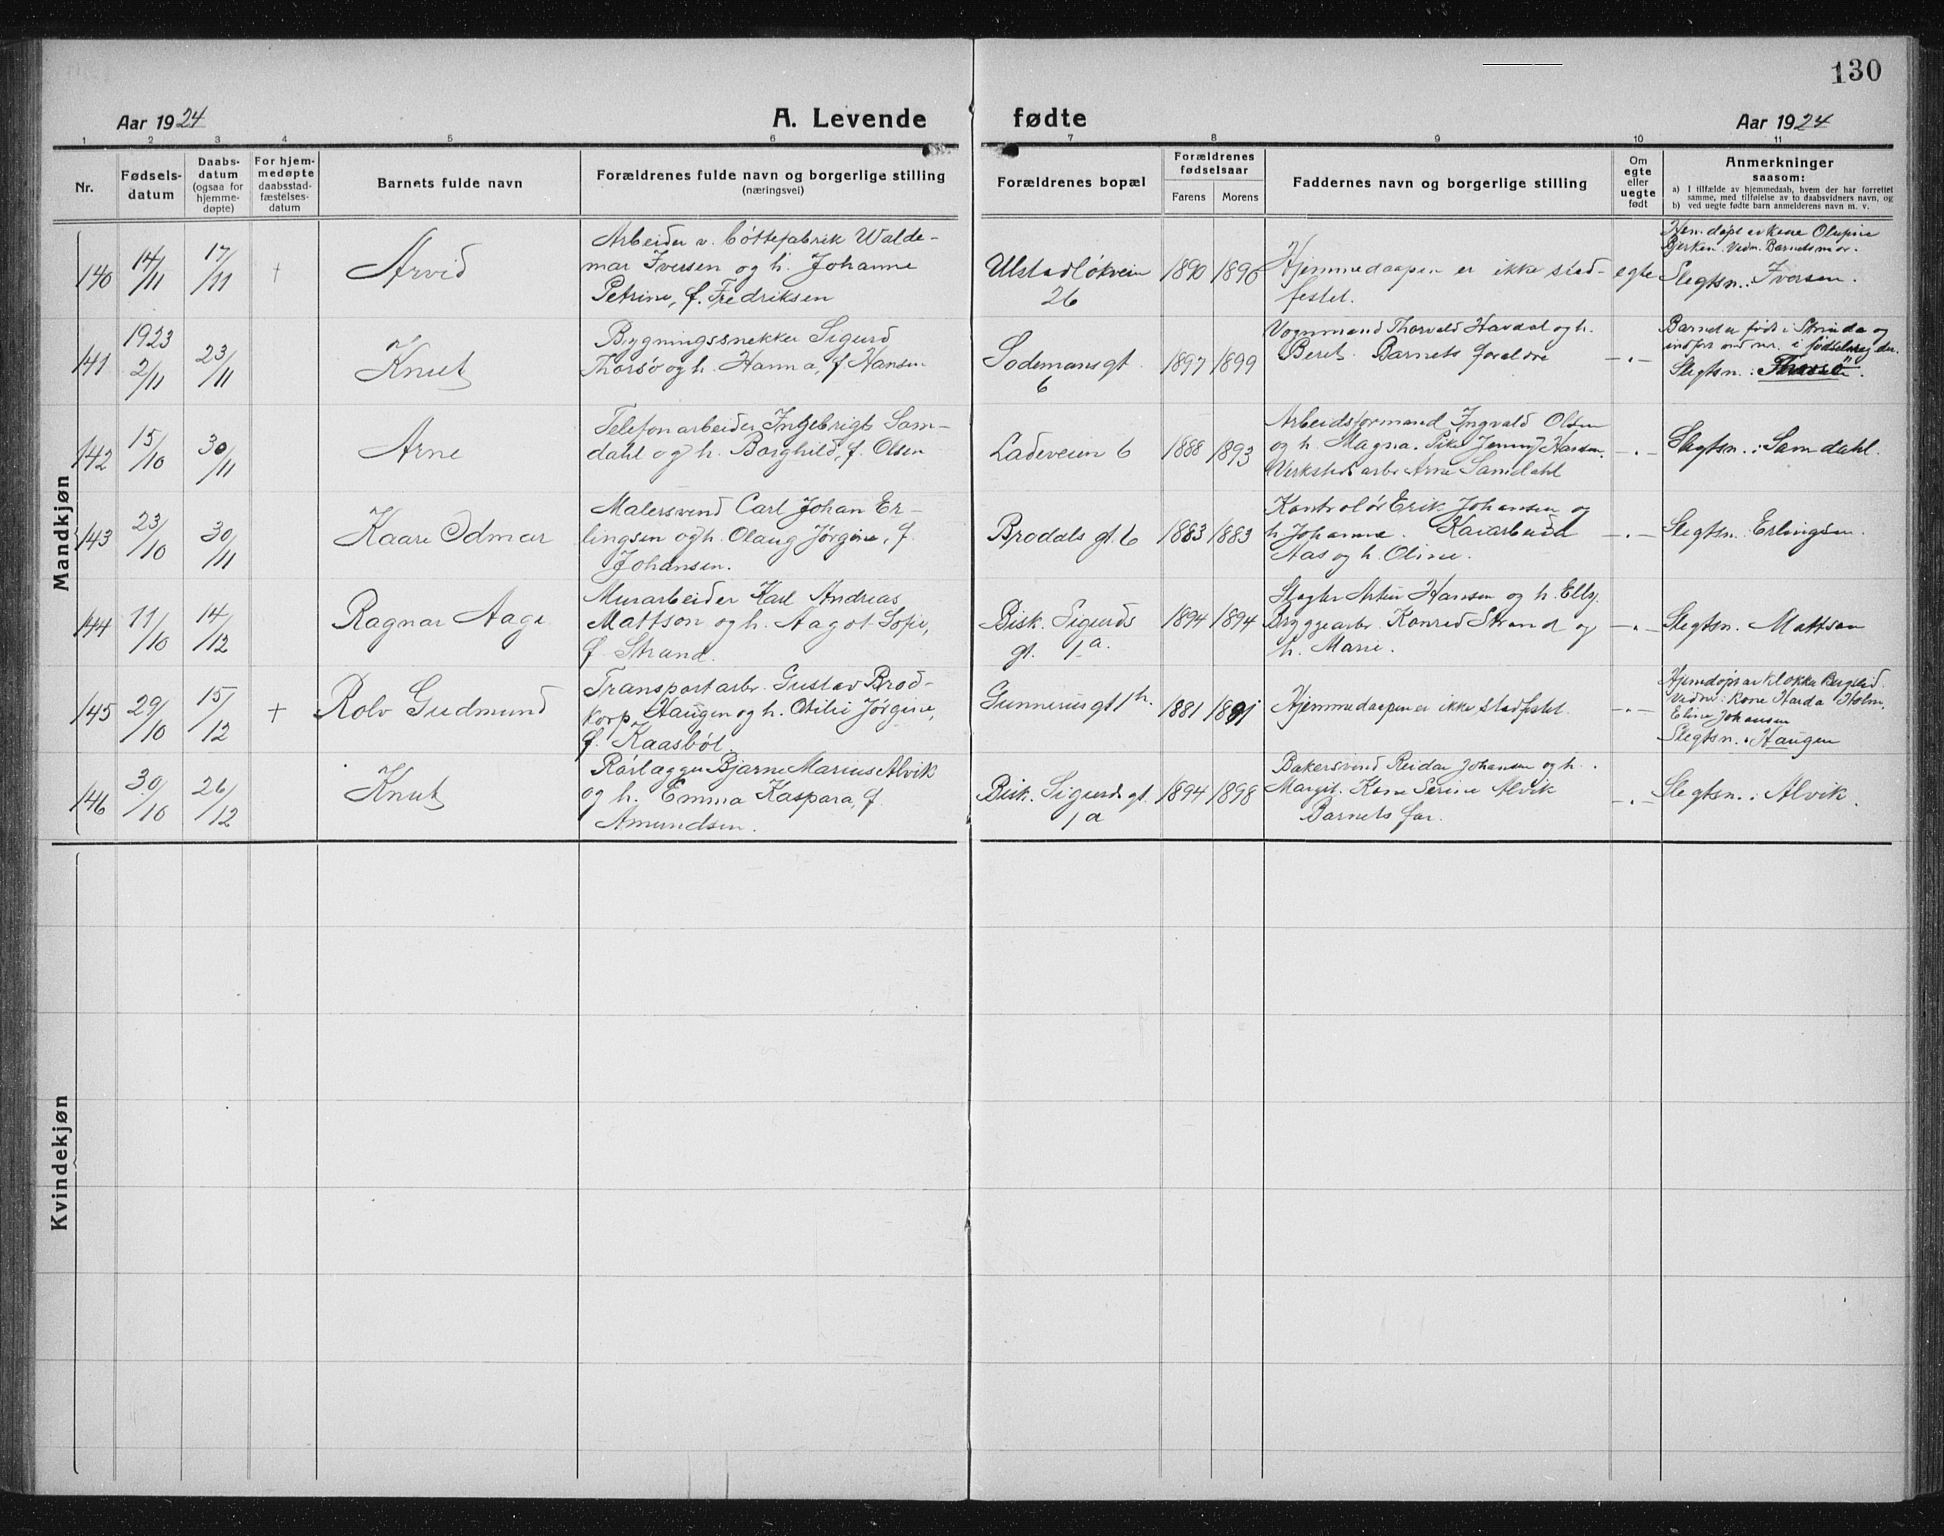 130
Aar 1924 A. Levende fødte Aar 1924
1 2 3 4 5 6 7 8 9 10 11
Nr.
Fødsels-
datum
Daabs-
datum
(ogsaa for
hjemme-
døpte)
For hjem-
medøpte
daabsstad-
fæstelses-
datum
Barnets fulde navn
Forældrenes fulde navn og borgerlige stilling
(næringsvei)
Forældrenes bopæl
Forældrenes
fødselsaar
Farens Morens
Faddernes navn og borgerlige stilling
Om
egte
eller
uegte
født
Anmerkninger
saasom:
a) I tilfælde av hjemmedaab, hvem der har forrettet
samme, med tilføielse av to daabsvidners navn, og
b) ved uegte fødte barn anmelderens navn m. v.
Mandkjøn
140 14/11 17/11 + Arvid
Arbeider v. Cottefabrik Walde-
mar Iversen og h. Johanne
Petrine, f. Fredriksen
Ulstadløkveien
26
1890 1896
Hjemmedaapen er ikke stad-
festet.
egte
Olupine
Bjerken. Vidn. Barnets mor.
Slegtsn.: Iversen.
141 1923 2/11 23/11 Knut
Bygningssnekker Sigurd
Thorsø og h. Hanna, f. Hansen
Sodemansgt.
6
1897 1899
Vognmand Thorvald Havdal og h.
Beret. Barnets forældre
-"-
Barnet er født i Strinda og
indført und nr. i fødselsreg der.
Slegtsn.: Thorsø.
142 15/10 30/11 Arne
Telefonarbeider Ingebrigt Sam-
dahl og h. Borghild, f. Olsen
Ladeveien 6
1888 1893
Arbeidsformand Ingvald Olsen
og h. Magna. Pike Jenny Hansen.
Verkstedsarbr Arne Samdahl
-"-
Slegtsn.: Samdahl.
143 23/10 30/11 Kaare Idmar
Malersvend Carl Johan Er-
lingsen og h. Olaug Jørgine, f.
Johansen.
Brodals gt. 6
1883 1883
Kontrolør Erik Johansen og
h. Johanne. Kaiarbeid
Aas og h. Oline.
-"-
Slegtsn. Erlingsen.
144 11/10 14/12 Ragnar Aage
Murarbeider Karl Andreas
Mattson og h. Aagot Sofie,
f. Strand.
Bisk. Sigurds
gt. 1a.
1894 1894
Slagter Artur Hansen og h. Elly.
Bryggearbr. Konrad Strand og
h. Marie.
-"-
Slegtsn. Mattson
145 29/10 15/12 + Rolv Gudmund
Transportarbr. Gustav Brod-
korp Haugen og h. Otilie Jørgine,
f. Kaasbøl.
Gunnerusgt 1h.
1881 1891
Hjemmedaapen er ikke stadfestet.
-"-
Hjemdøpt av klokker Bergslid.
Vidner: Kone Harda Holm,
Eline Johansen
Slegtsn.: Haugen
146 30/10 26/12 Knut
Rørlægger Bjarne Marius Alvik
og h. Emma Kaspara f.
Amundsen.
Bisk. Sigurds gt.
1a
1894 1898
Bakersvend Reidar Johansen og h.
Margit. Kone Serine Alvik
Barnets far.
-"-
Slegtsn.: Alvik.
Kvindekjøn